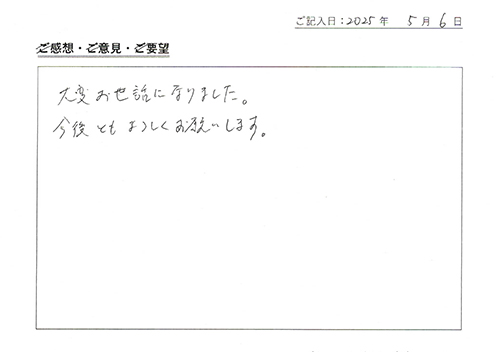 ご記入日：2025年 5月 6日
ご感想・ご意見・ご要望
大変お世話になりました。
今後ともよろしくお願いします。